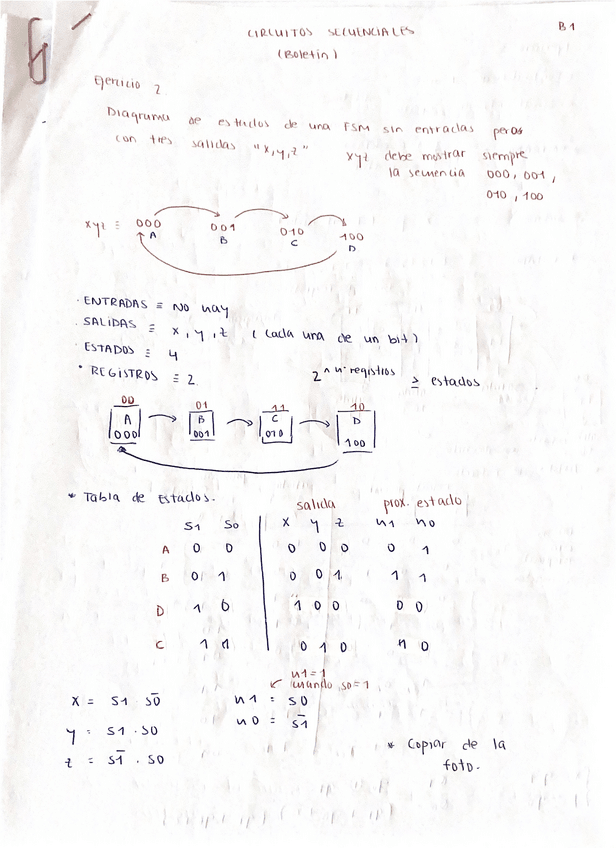 CIRCUITOS SECUENCIALES
B1
(Boletín)
Ejercicio 2
Diagrama de estados de una FSM sin entradas peros
con tres salidas "x,y,z" xyz debe mostrar siempre
la secuencia 000, 001,
010, 100
xyz ≡ 000 001 010 100
A B C D
· ENTRADAS ≡ No hay
· SALIDAS ≡ x, y, z (cada una de un bit)
· ESTADOS ≡ 4
· REGISTROS ≡ 2 2^nº registros ≥ estados
00 01 11 10
A B C D
000 001 010 100
* Tabla de Estados.
salida prox. estado
S1 S0 x y z n1 n0
A 0 0 0 0 0 0 1
B 0 1 0 0 1 1 1
D 1 0 1 0 0 0 0
C 1 1 0 1 0 1 0
n1=1
cuando s0=1
x = S1 · S̅0̅ n1 = S0
y = S1 · S0 n0 = S̅1̅
z = S̅1̅ · S0
* Copiar de la
foto.